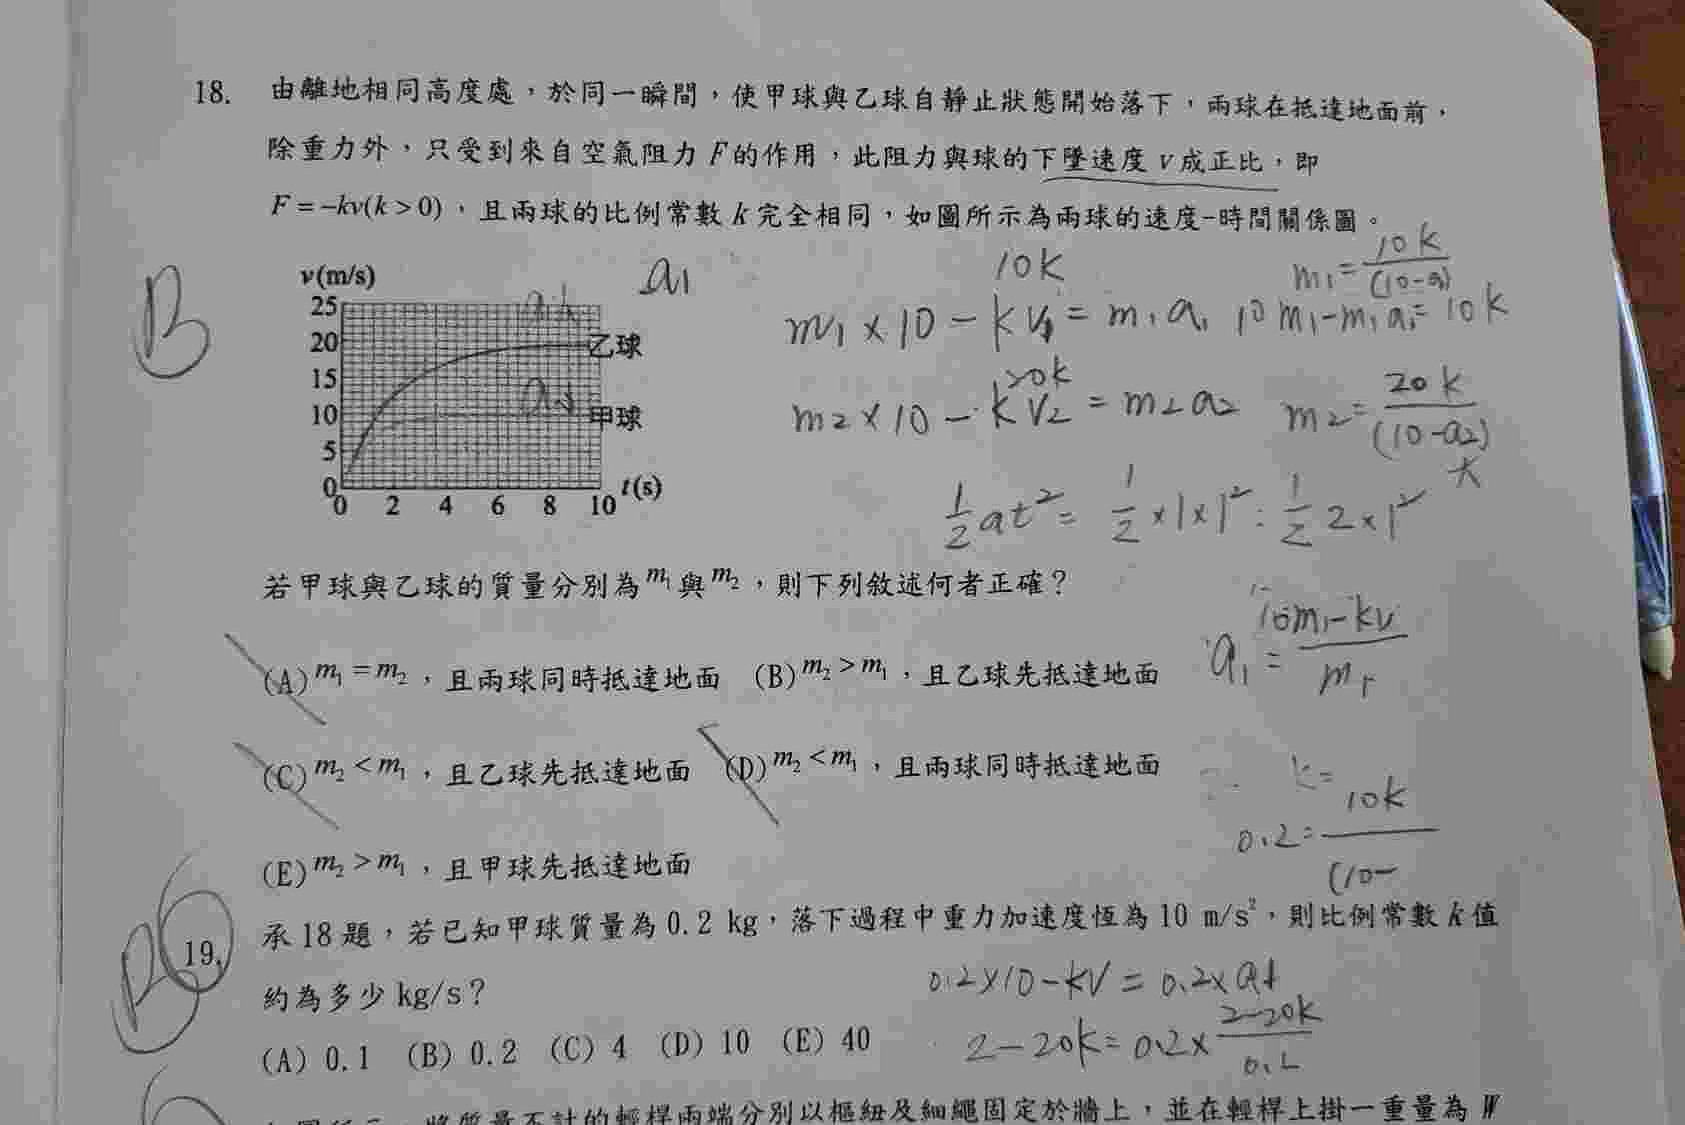 18. 由離地相同高度處，於同一瞬間，使甲球與乙球自靜止狀態開始落下，兩球在抵達地面前，
除重力外，只受到來自空氣阻力 F 的作用，此阻力與球的下墜速度 v 成正比，即
F = -kv(k > 0)，且兩球的比例常數 k 完全相同，如圖所示為兩球的速度-時間關係圖。
B
v(m/s)
25
20
15
10
5
0
0 2 4 6 8 10 t(s)
乙球
甲球
a1
10k
m1 × 10 - kv1 = m1a1
m1 = 10k/(10-a)
10m1 - m1a1 = 10k
20k
m2 × 10 - kv2 = m2a2
m2 = 20k/(10-a2)
1/2 at² = 1/2 × 1 × 1² : 1/2 2 × 1²
若甲球與乙球的質量分別為 m1 與 m2，則下列敘述何者正確？
a1 = 10m1-kv/m1
(A) m1 = m2，且兩球同時抵達地面 (B) m2 > m1，且乙球先抵達地面
(C) m2 < m1，且乙球先抵達地面 (D) m2 < m1，且兩球同時抵達地面
k=
0.2 = 10k/(10-
(E) m2 > m1，且甲球先抵達地面
19. 承 18 題，若已知甲球質量為 0.2 kg，落下過程中重力加速度恆為 10 m/s²，則比例常數 k 值
約為多少 kg/s？
0.2×10-kv = 0.2×a
2-20k = 0.2× 2-20k/0.2
(A) 0.1 (B) 0.2 (C) 4 (D) 10 (E) 40
將質量不計的輕桿兩端分別以樞紐及細繩固定於牆上，並在輕桿上掛一重量為 W